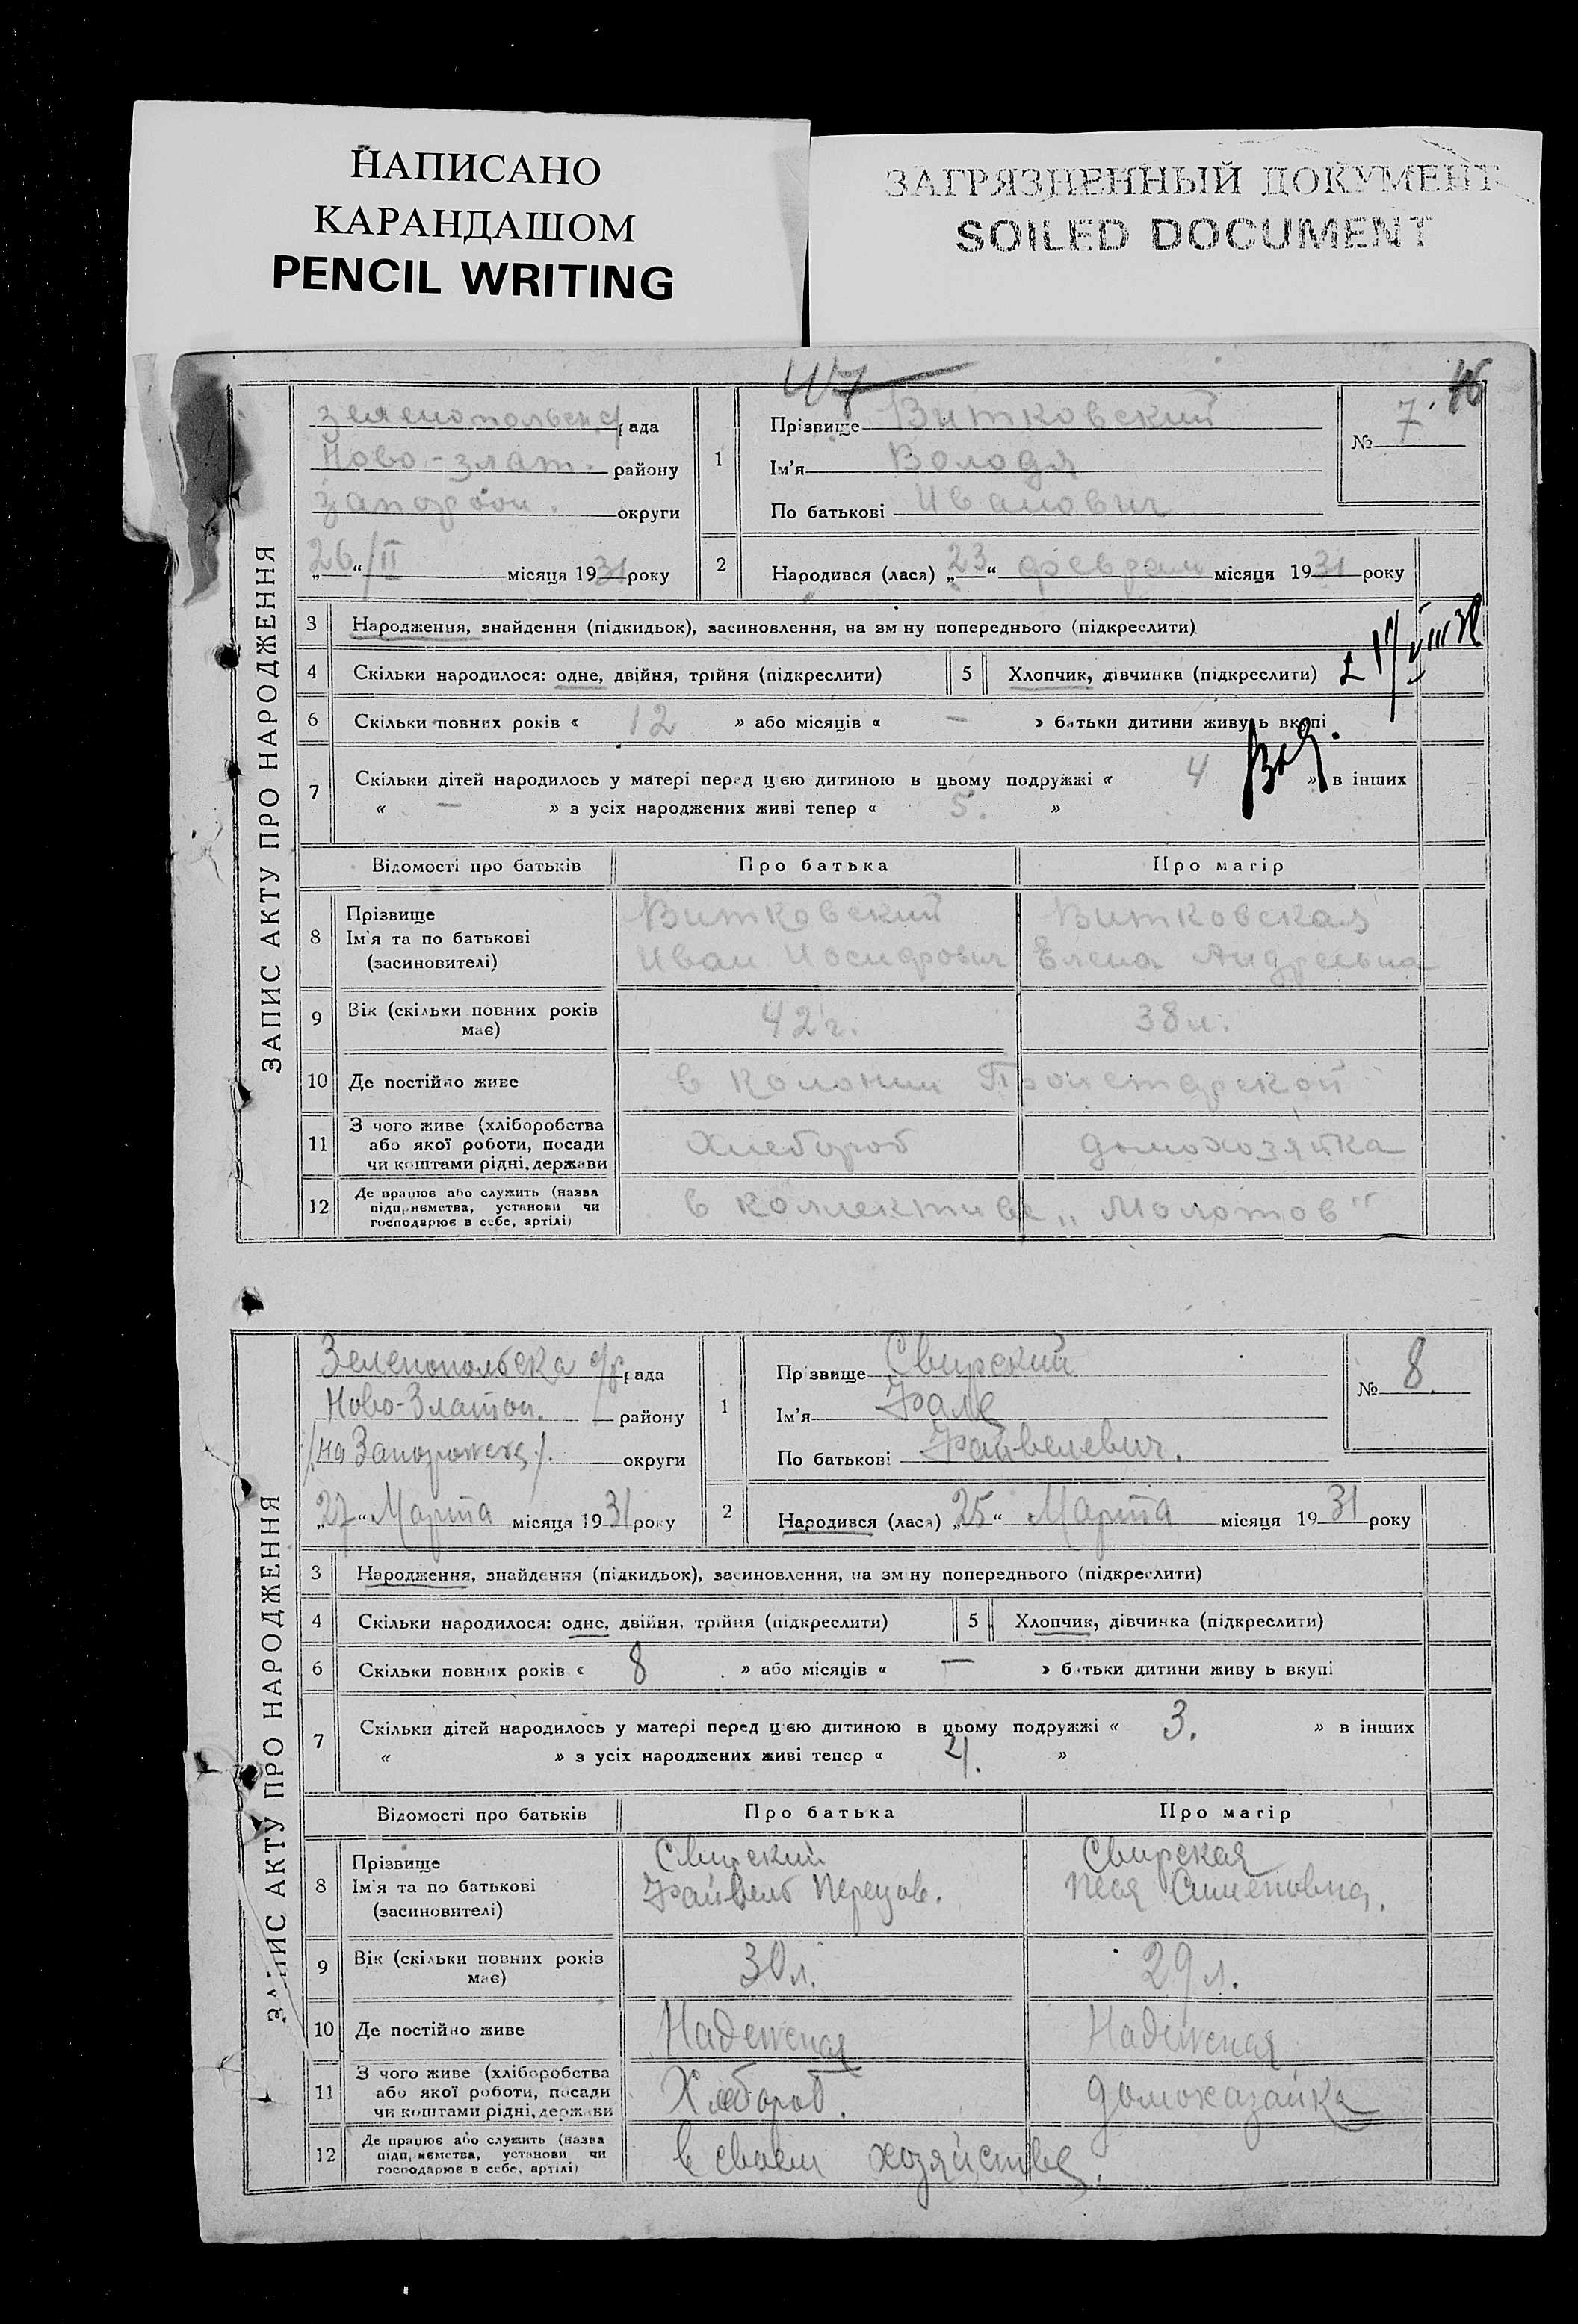 НАПИСАНО
КАРАНДАШОМ
PENCIL WRITING
ЗАГРЯЗНЕННЫЙ ДОКУМЕНТ
SOILED DOCUMENT
ЗАПИС АКТУ ПРО НАРОДЖЕННЯ
рада
Ново-злат. району
округи
„26“/II місяця 1931 року
1
Прізвище Витковский
Ім'я Володя
По батькові Иванович
№ 7
2 Народився (лася) „23“ февраля місяця 1931 року
3 Народження, знайдення (підкидьок), засиновлення, на зміну попереднього (підкреслити)
4 Скільки народилося: одне, двійня, трійня (підкреслити) 5 Хлопчик, дівчинка (підкреслити)
6 Скільки повних років « 12 » або місяців « — » батьки дитини живуть вкупі
7 Скільки дітей народилось у матері перед цією дитиною в цьому подружжі « 4 » в інших
« — » з усіх народжених живі тепер « 5. »
Відомості про батьків Про батька Про матір
8 Прізвище
Ім'я та по батькові
(засиновителі)
Витковский Витковская
Иван Иосифович Елена Андреевна
9 Вік (скільки повних років має) 42 г. 38 л.
10 Де постійно живе в колонии Пролетарской
11 З чого живе (хліборобства
або якої роботи, посади
чи коштами рідні, держави
Хлебороб домохозяйка
12 Де працює або служить (назва
підприємства, установи чи
господарює в себе, артілі)
в коллективе „Молотов"
ЗАПИС АКТУ ПРО НАРОДЖЕННЯ
Зеленопольска с/р рада
Ново-Златоп. району
округи
„27“ Марта місяця 1931 року
1
Прізвище Свирский
Ім'я
По батькові Файвелевич.
№ 8.
2 Народився (лася) „25“ Марта місяця 1931 року
3 Народження, знайдення (підкидьок), засиновлення, на зміну попереднього (підкреслити)
4 Скільки народилося: одне, двійня, трійня (підкреслити) 5 Хлопчик, дівчинка (підкреслити)
6 Скільки повних років « 8 » або місяців « — » батьки дитини живуть вкупі
7 Скільки дітей народилось у матері перед цією дитиною в цьому подружжі « 3. » в інших
« » з усіх народжених живі тепер « 4. »
Відомості про батьків Про батька Про матір
8 Прізвище
Ім'я та по батькові
(засиновителі)
Свирский Свирская
Файвель Перецов. Песя Симёновна.
9 Вік (скільки повних років має) 30 л. 29 л.
10 Де постійно живе Надежная Надежная
11 З чого живе (хліборобства
або якої роботи, посади
чи коштами рідні, держави
Хлебороб. домохазайка
12 Де працює або служить (назва
підприємства, установи чи
господарює в себе, артілі)
в своем хозяйстве.